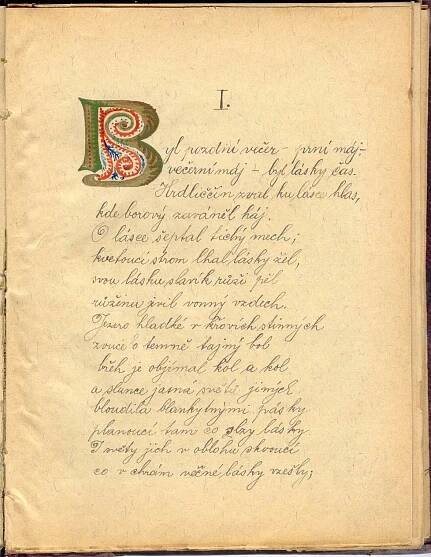 I.
Byl pozdní večer – první máj –
večerní máj – byl lásky čas.
Hrdliččin zval ku lásce hlas,
kde borový zaváněl háj.
O lásce šeptal tichý mech;
kvetoucí strom lhal lásky žel,
svou lásku slavík růži pěl
růžinu jevil vonný vzdech.
Jezero hladké v křovích stinných
zvuče o temně tajný bol
břeh je objímal kol a kol
a slunce jasná světů jiných
bloudila blankytnými pásky
planoucí tam co slzy lásky
I světy jich v oblohu skvoucí
co v chrám věčné lásky vzešly;